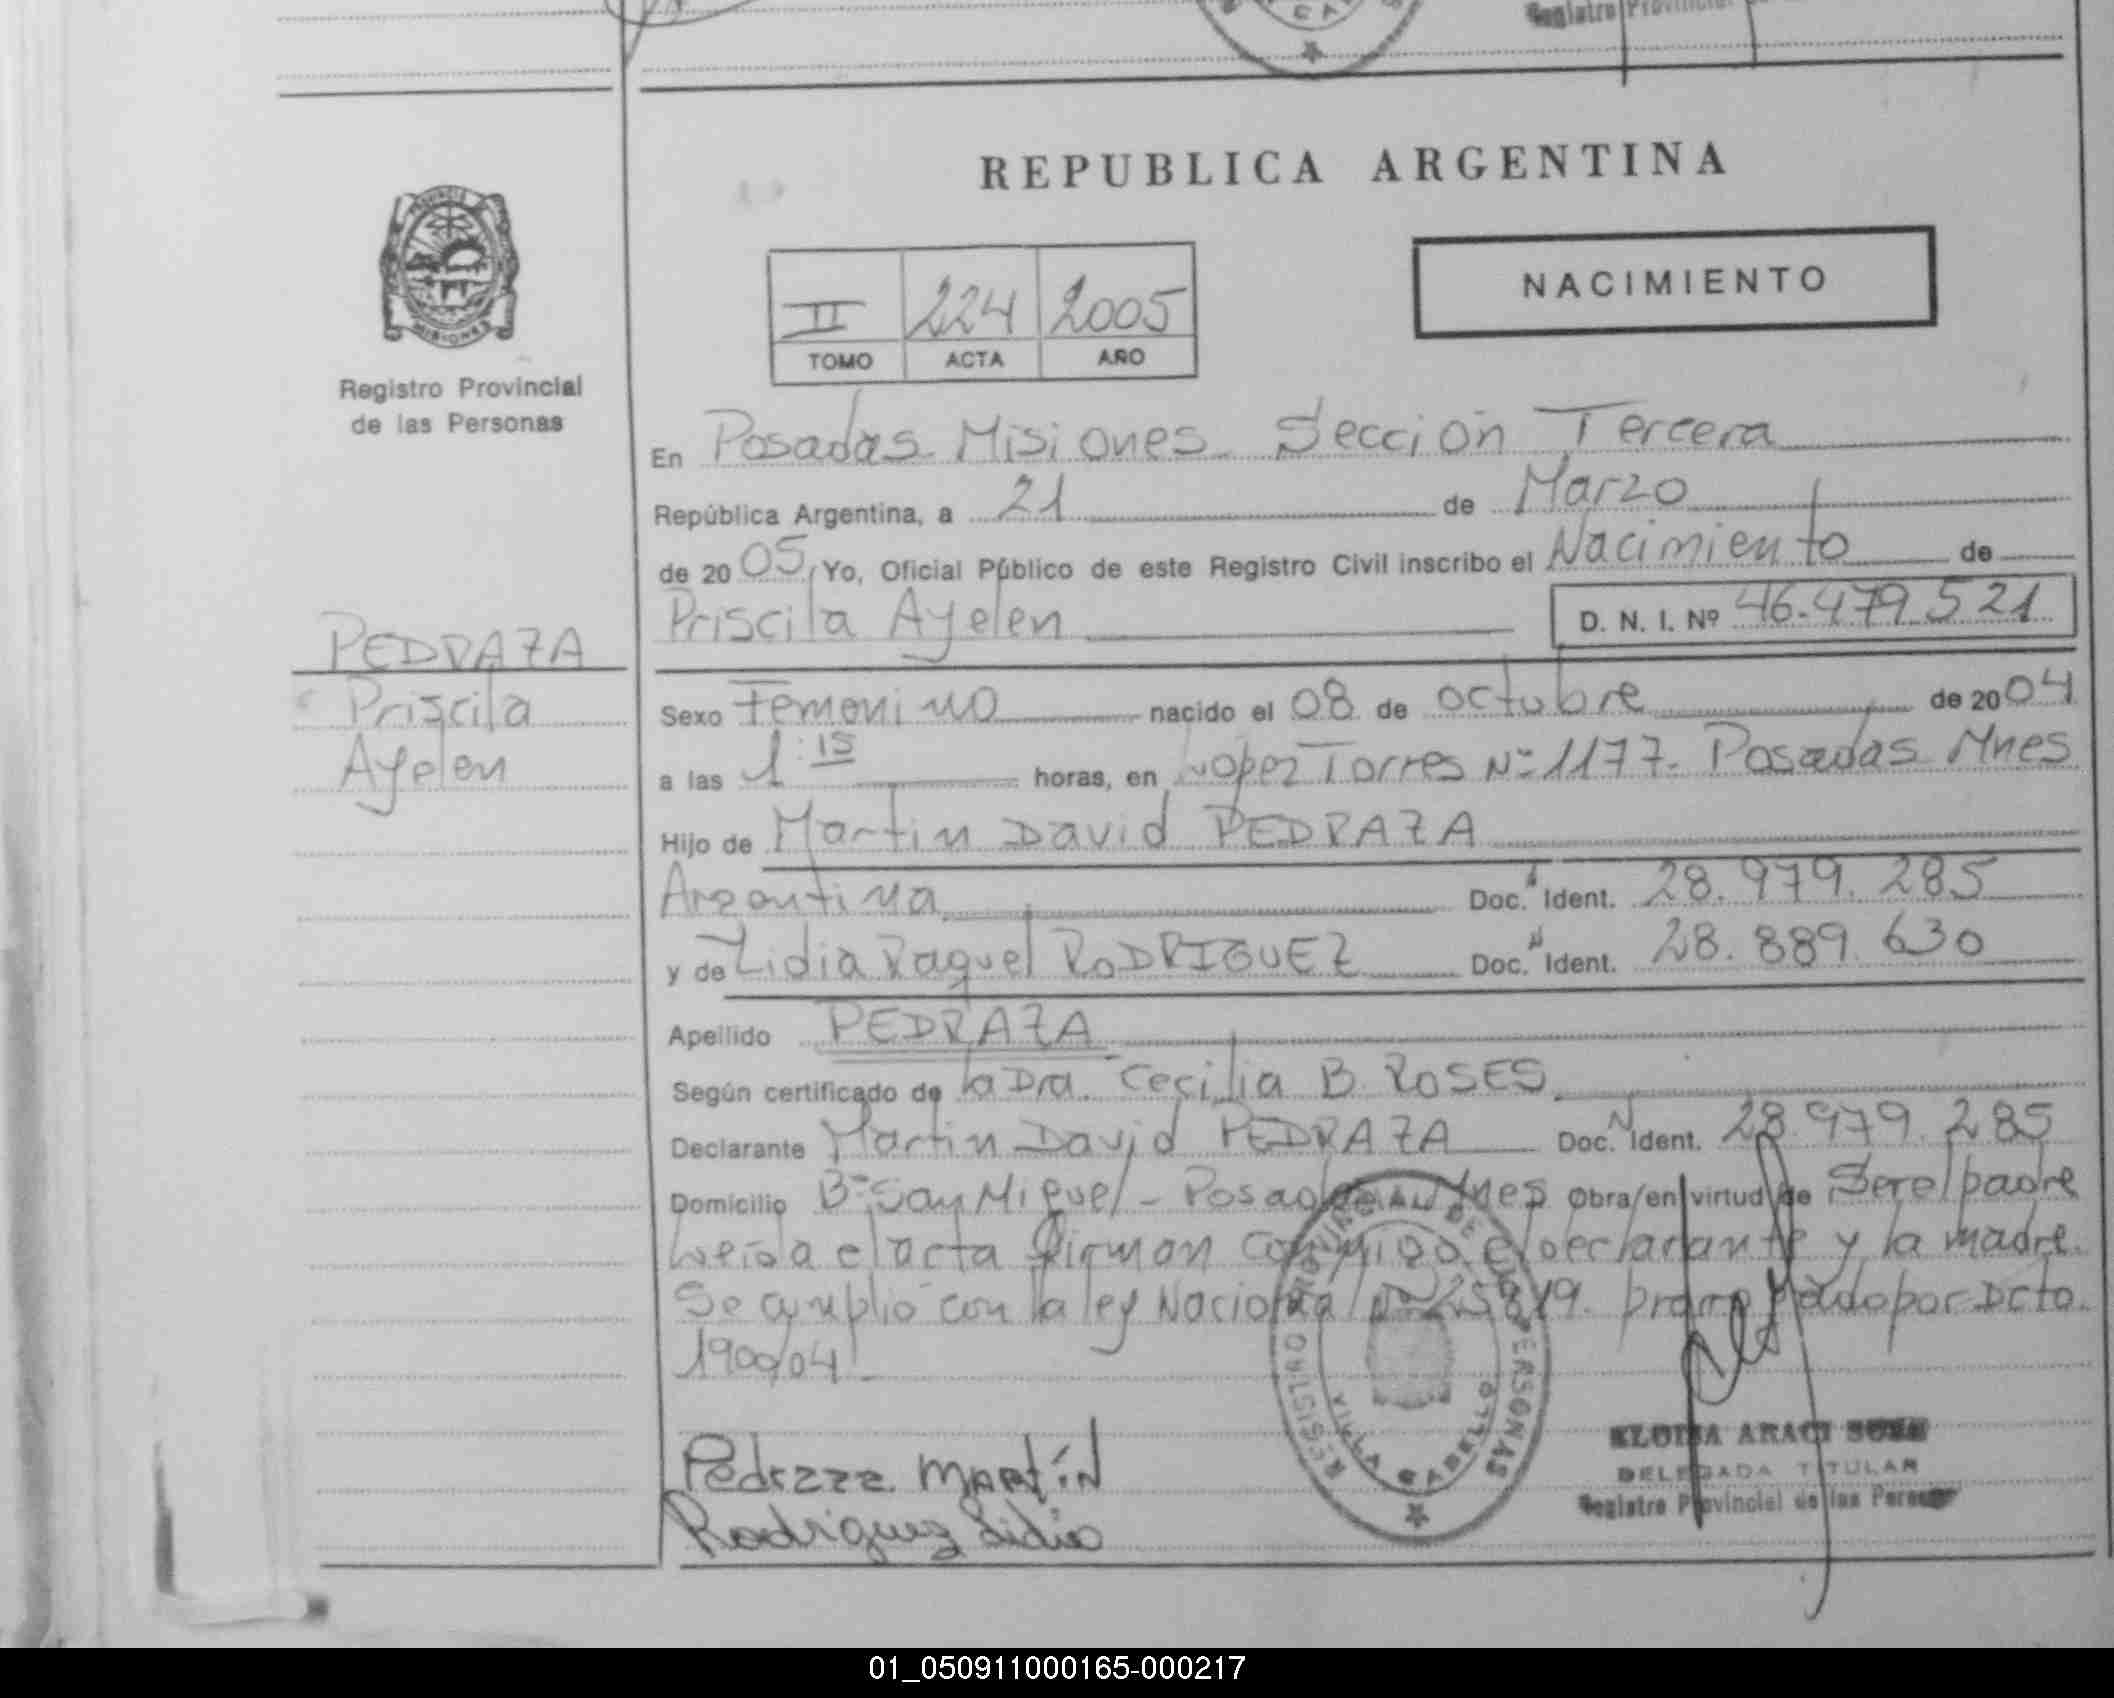 Registro Provincial
REPUBLICA ARGENTINA
NACIMIENTO
II 224 2005
TOMO ACTA AÑO
PROVINCIA
MISIONES
Registro Provincial
de las Personas
En Posadas Misiones. Sección Tercera
República Argentina, a 21 de Marzo
de 20 05, Yo, Oficial Público de este Registro Civil inscribo el Nacimiento de
Priscila Ayelen D. N. I. Nº 46.479.521
PEDRAZA
Priscila
Ayelen
Sexo Femenino nacido el 08 de octubre de 20 04
a las 1:15 horas, en Lopez Torres Nº 1177. Posadas Mnes
Hijo de Martin David PEDRAZA
Argentina Doc. N Ident. 28.979.285
y de Lidia Raquel RODRIGUEZ Doc. N Ident. 28.889.630
Apellido PEDRAZA
Según certificado de la Dra. Cecilia B. ROSES
Declarante Martin David PEDRAZA Doc. N Ident. 28.979.285
Domicilio Bº San Miguel - Posadas Mnes Obra/en virtud de Ser el padre
Leída el acta firman conmigo el declarante y la madre.
Se cumplió con la ley Nacional nº 25819. por Dcto.
1900/04.
REGISTRO PROVINCIAL DE LAS PERSONAS
VILLA CABELLO
Pedraza Martín
Rodriguez Lidia
DELEGADA TITULAR
Registro Provincial de las Personas
01_050911000165-000217